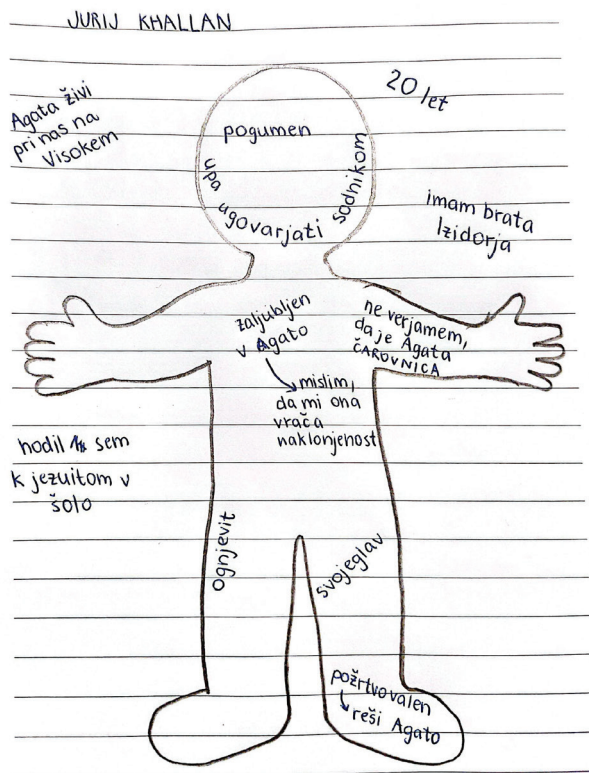 JURIJ KHALLAN
20 let
Agata živi
pri nas na
Visokem
pogumen
upa ugovarjati sodnikom
imam brata
Izidorja
zaljubljen
v Agato
mislim,
da mi ona
vrača
naklonjenost
ne verjamem,
da je Agata
ČAROVNICA
hodil sem
k jezuitom v
šolo
ognjevit
svojeglav
požrtvovalen
reši Agato